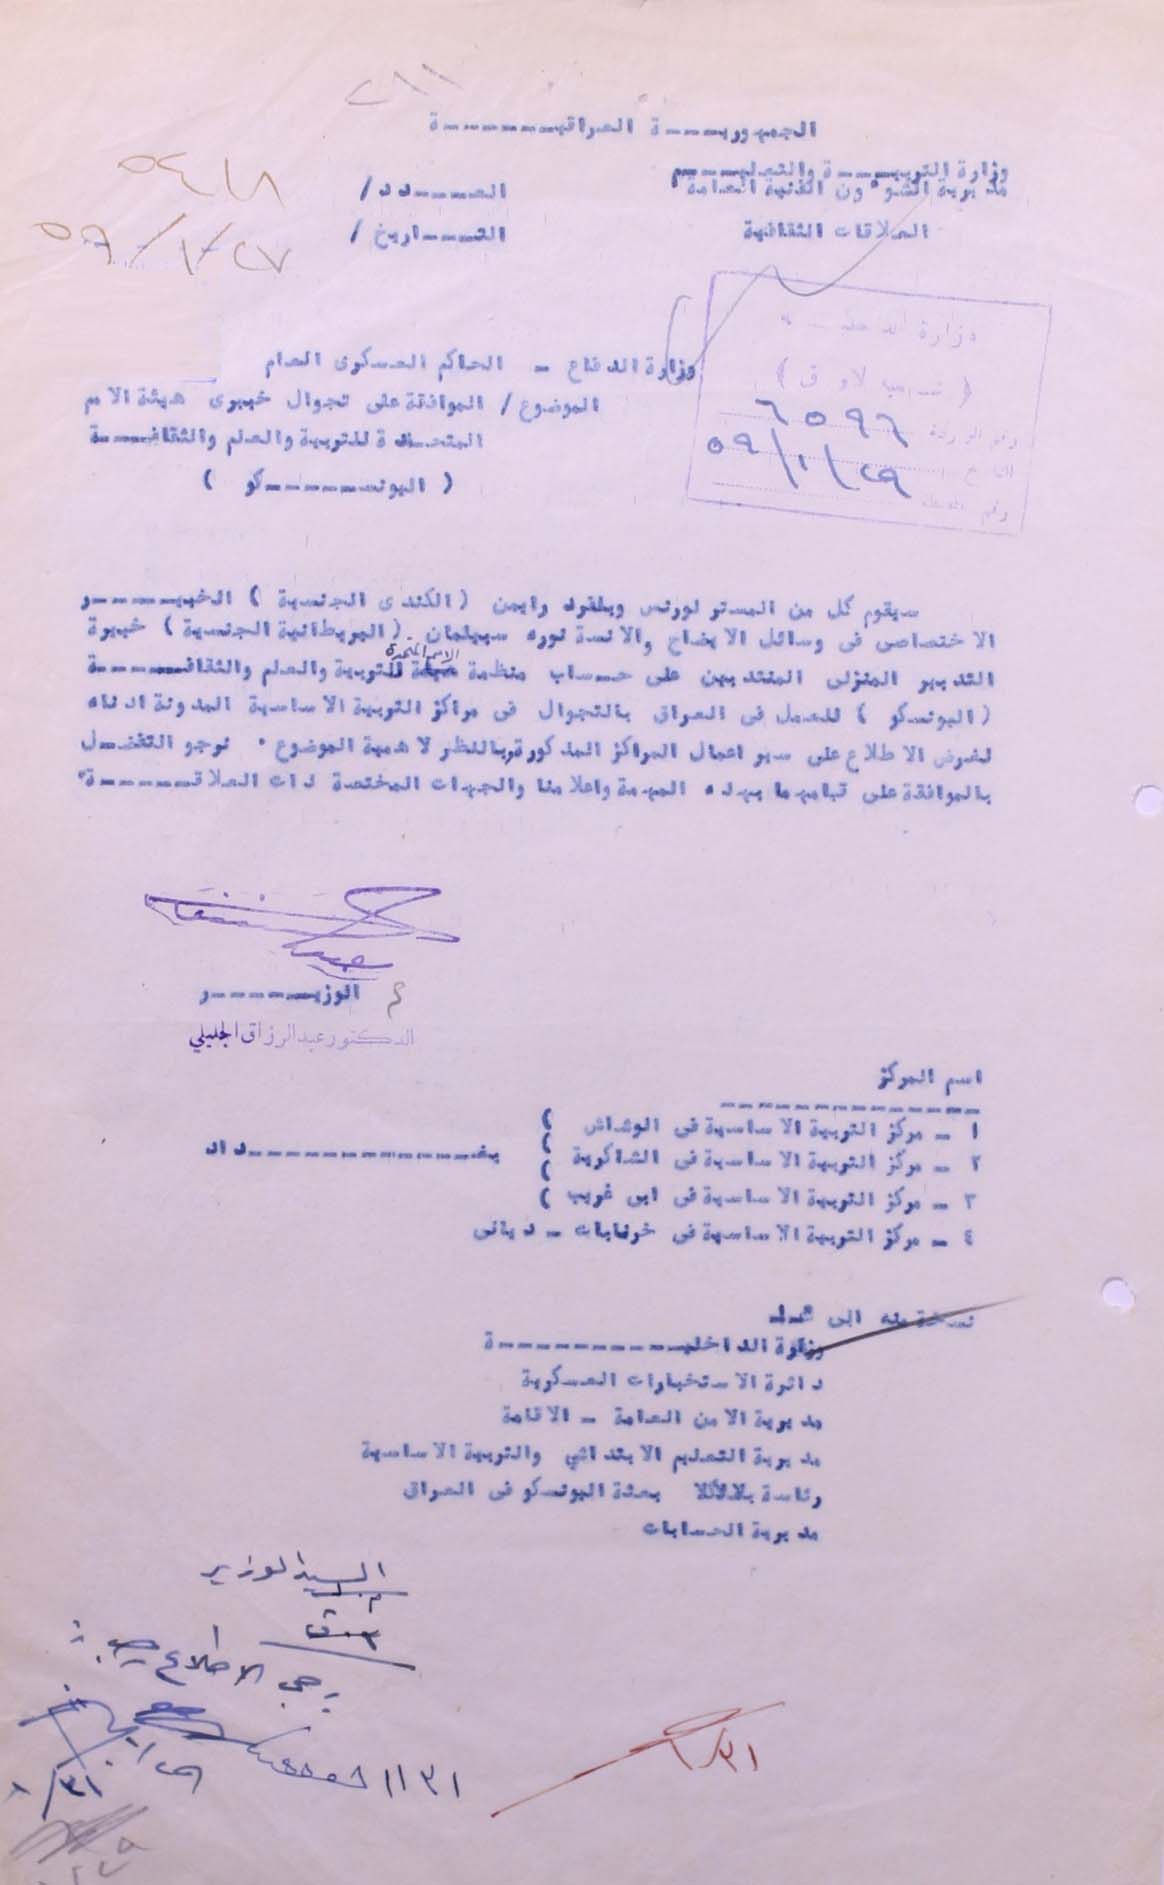 ٢٨١١
الجمهوريـــــة العراقيــــــــة
وزارة التربيـــــة والتعليــــم
مديرية الشؤون الفنية العامة
العـــــدد / ٥٤١٨
العلاقات الثقافية
التــــاريخ / ٢٧/١/٥٩
وزارة الداخليـــة
رقم الواردة ٦٥٩٦
التاريخ ٢٩/١/٥٩
وزارة الدفاع - الحاكم العسكرى العام
الموضوع / الموافقة على تجوال خبيرى هيئة الامم
المتحـدة للتربية والعلم والثقافـــــة
( اليونســــــــكو )
سيقوم كل من المستر لورنس ويلفرد رايمن (الكندى الجنسية ) الخبيـــــــر
الاختصاصى فى وسائل الايضاح والانسة نوره سيبلمان (البريطانية الجنسية ) خبيرة
التدبير المنزلى المنتدبين على حساب منظمة الامم المتحدة للتربية والعلم والثقافـــــــة
(اليونسكو ) للعمل فى العراق بالتجوال فى مراكز التربية الاساسية المدونة ادناه
لغرض الاطلاع على سير اعمال المراكز المذكورة وبالنظر لاهمية الموضوع ٠ نرجو التفضـل
بالموافقة على قيامهما بهذه المهمة واعلامنا والجهات المختصة ذات العلاقـــــــة ٠
الوزيــــــــر
الدكتور عبد الرزاق الجليلي
اسم المركز
١ - مركز التربية الاساسية فى الوشاش )
٢ - مركز التربية الاساسية فى الشاكرية ) بغــــــــــــــداد
٣ - مركز التربية الاساسية فى ابى غريب )
٤ - مركز التربية الاساسية فى خرنابات - ديالى
نسخة منه الى
وزارة الداخليــــــــــــــة
دائرة الاستخبارات العسكرية
مديرية الامن العامة - الاقامة
مديرية التعليم الابتدائي والتربية الاساسية
رئاسة بعثة اليونسكو فى العراق
مديرية الحسابات
السيد الوزير
يرجى الاطلاع
١/٣١
١/٣١